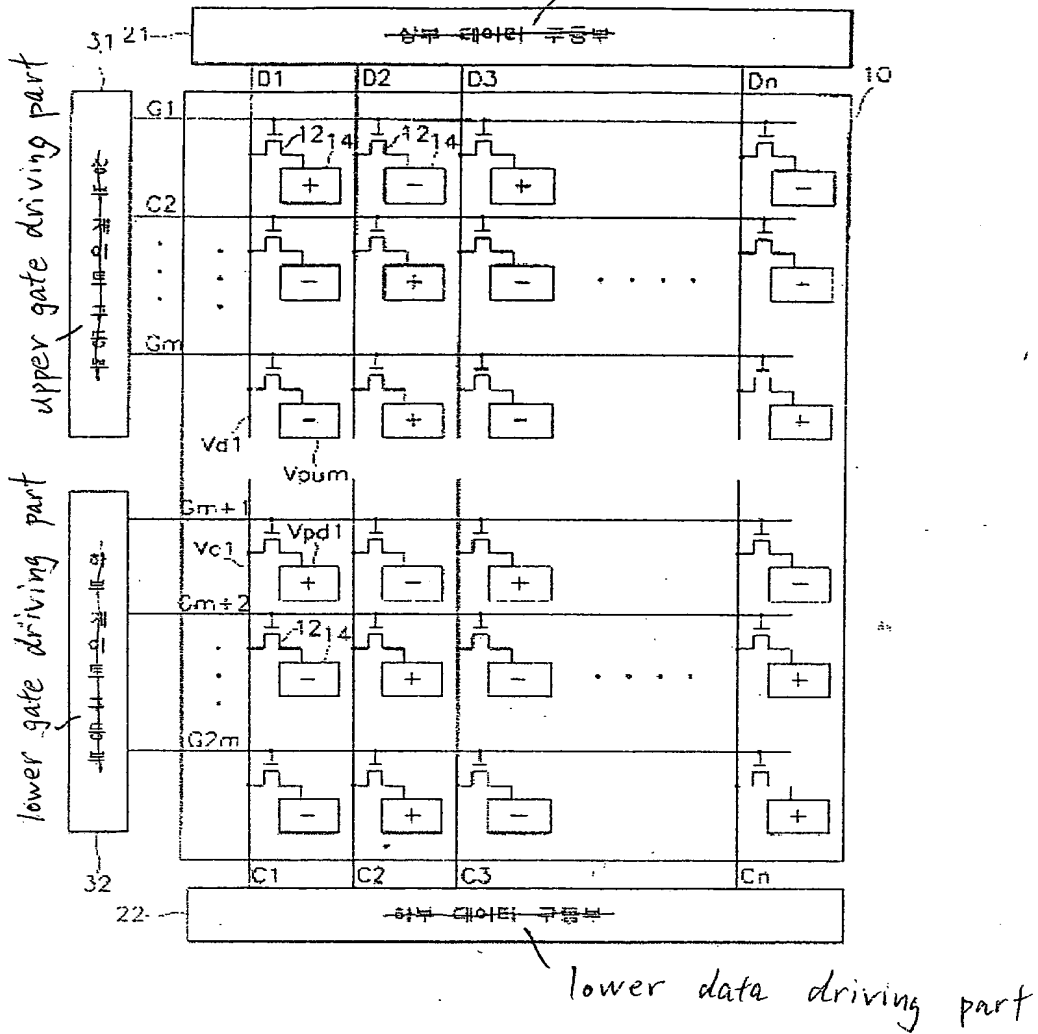 21
상부 데이터 구동부
31
upper gate driving part
상부 게이트 구동부
D1 D2 D3 Dn
10
G1
12 14 12 14
+ - + -
C2
- + - -
Gm
- + - +
Vd1
Vpum
lower gate driving part
하부 게이트 구동부
Gm+1
Vc1 Vpd1
+ - + -
Gm+2
12 14
- + - +
G2m
- + - +
32
C1 C2 C3 Cn
22
하부 데이터 구동부
lower data driving part